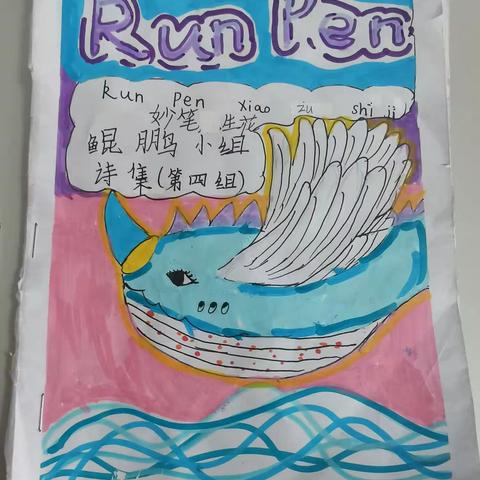 Run Pen
kun pen xiao zu shi ji
妙笔生花
鲲鹏小组
诗集(第四组)